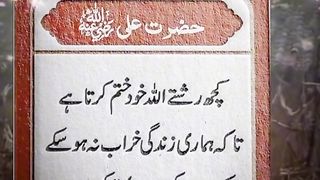 حضرت علی رضی اللہ عنہ
کچھ رشتے اللہ خود ختم کرتا ہے
تاکہ ہماری زندگی خراب نہ ہو سکے